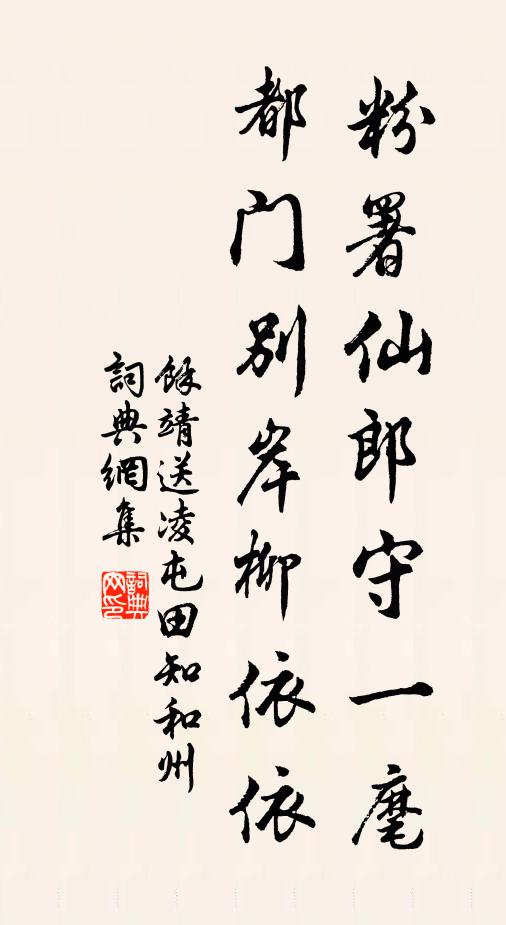 粉署仙郎守一麾
都门别岸柳依依
餘靖送凌屯田知和州
詞典網集
詞典网印